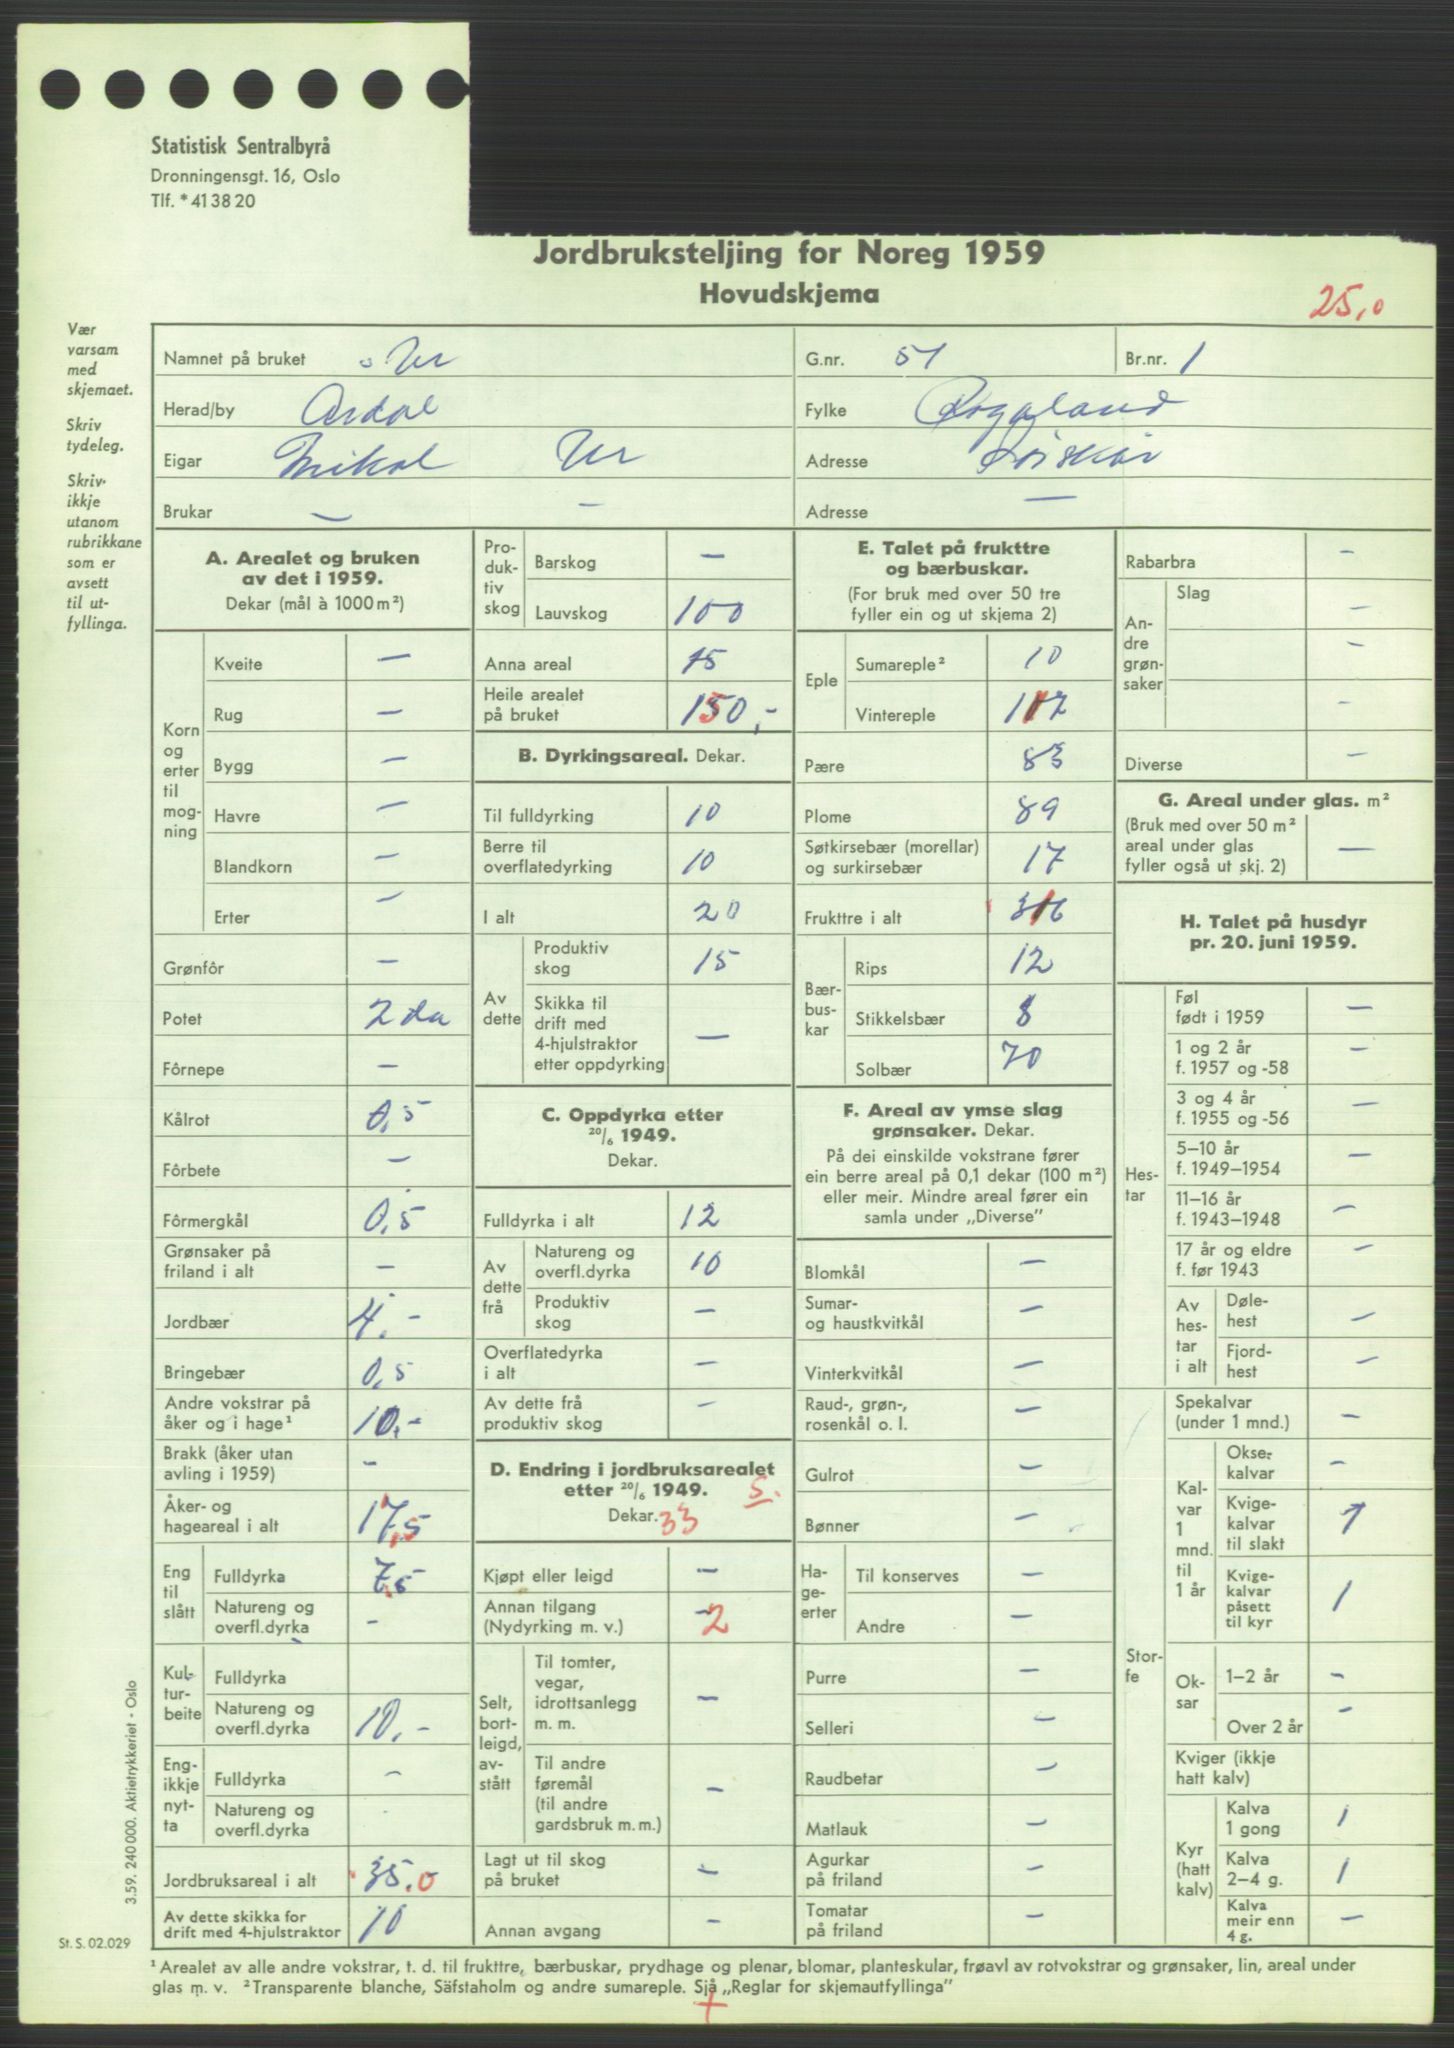 Statistisk Sentralbyrå
Dronningensgt. 16, Oslo
Tlf. * 41 38 20
Jordbruksteljing for Noreg 1959
Hovudskjema
25,0
Vær
varsam
med
skjemaet.
Skriv
tydeleg.
Skriv-
ikkje
utanom
rubrikkane
som er
avsett
til ut-
fyllinga.
Namnet på bruket Ur G.nr. 51 Br.nr. 1
Herad/by Årdal Fylke Rogaland
Eigar Mikal Ur Adresse
Brukar — — Adresse —
A. Arealet og bruken
av det i 1959.
Dekar (mål à 1000 m²)
Korn og erter til mog-ning
Kveite —
Rug —
Bygg —
Havre —
Blandkorn —
Erter —
Grønfôr —
Potet 2 da
Fôrnepe —
Kålrot 0,5
Fôrbete —
Fôrmergkål 0,5
Grønsaker på
friland i alt —
Jordbær 4,-
Bringebær 0,5
Andre vokstrar på
åker og i hage¹ 10,-
Brakk (åker utan
avling i 1959) -
Åker- og
hageareal i alt 17,5
Eng til slått
Fulldyrka 7,5
Natureng og
overfl.dyrka -
Kul-tur-beite
Fulldyrka
Natureng og
overfl.dyrka 10,-
Eng-ikkje nyt-ta
Fulldyrka -
Natureng og
overfl.dyrka
Jordbruksareal i alt 35,0
Av dette skikka for
drift med 4-hjulstraktor 10
Pro-duk-tiv skog
Barskog —
Lauvskog 100
Anna areal 15
Heile arealet
på bruket 150,-
B. Dyrkingsareal. Dekar.
Til fulldyrking 10
Berre til
overflatedyrking 10
I alt 20
Av dette
Produktiv
skog 15
Skikka til
drift med
4-hjulstraktor
etter oppdyrking —
C. Oppdyrka etter
20/6 1949.
Dekar.
Fulldyrka i alt 12
Av dette frå
Natureng og
overfl.dyrka 10
Produktiv
skog —
Overflatedyrka
i alt —
Av dette frå
produktiv skog —
D. Endring i jordbruksarealet
etter 20/6 1949. 5.
Dekar. 33
Kjøpt eller leigd —
Annan tilgang
(Nydyrking m. v.) 2
Selt, bort-leigd, av-stått
Til tomter,
vegar,
idrottsanlegg
m. m. —
Til andre
føremål
(til andre
gardsbruk m. m.) —
Lagt ut til skog
på bruket —
Annan avgang —
E. Talet på frukttre
og bærbuskar.
(For bruk med over 50 tre
fyller ein og ut skjema 2)
Eple
Sumareple² 10
Vintereple 117
Pære 83
Plome 89
Søtkirsebær (morellar)
og surkirsebær 17
Frukttre i alt 316
Bær-bus-kar
Rips 12
Stikkelsbær 8
Solbær 70
F. Areal av ymse slag
grønsaker. Dekar.
På dei einskilde vokstrane fører
ein berre areal på 0,1 dekar (100 m²)
eller meir. Mindre areal fører ein
samla under „Diverse”
Blomkål —
Sumar-
og haustkvitkål —
Vinterkvitkål —
Raud-, grøn-,
rosenkål o. l. —
Gulrot —
Bønner —
Ha-ge-erter
Til konserves —
Andre —
Purre —
Selleri —
Raudbetar —
Matlauk —
Agurkar
på friland —
Tomatar
på friland —
Rabarbra —
An-dre grøn-saker
Slag
—
—
—
Diverse —
G. Areal under glas. m²
(Bruk med over 50 m²
areal under glas
fyller også ut skj. 2) —
H. Talet på husdyr
pr. 20. juni 1959.
Hes-tar
Føl
født i 1959 —
1 og 2 år
f. 1957 og -58 —
3 og 4 år
f. 1955 og -56 —
5–10 år
f. 1949–1954 —
11–16 år
f. 1943–1948 —
17 år og eldre
f. før 1943 —
Av hes-tar i alt
Døle-
hest —
Fjord-
hest —
Stor-fe
Spekalvar
(under 1 mnd.) —
Kal-var 1 mnd. til 1 år
Okse-
kalvar -
Kvige-
kalvar
til slakt 1
Kvige-
kalvar
påsett
til kyr 1
Ok-sar
1–2 år -
Over 2 år -
Kviger (ikkje
hatt kalv)
Kyr (hatt kalv)
Kalva
1 gong 1
Kalva
2–4 g. 1
Kalva
meir enn
4 g. —
3.59. 240 000. Aktietrykkeriet - Oslo
St. S. 02.029
¹ Arealet av alle andre vokstrar, t. d. til frukttre, bærbuskar, prydhage og plenar, blomar, planteskular, frøavl av rotvokstrar og grønsaker, lin, areal under
glas m. v. ² Transparente blanche, Säfstaholm og andre sumareple. Sjå „Reglar for skjemautfyllinga”
+